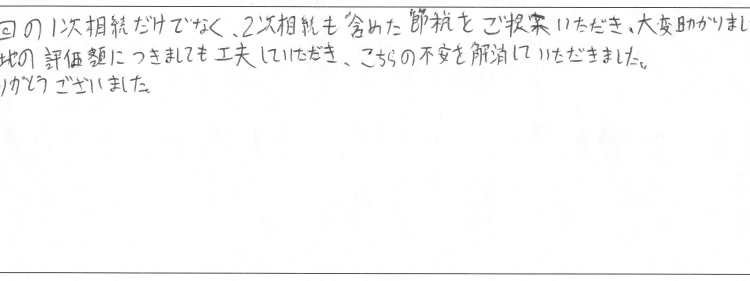 回の1次相続だけでなく、2次相続も含めた節税をご提案いただき、大変助かりまし
地の評価額につきましても工夫していただき、こちらの不安を解消していただきました。
りがとうございました。